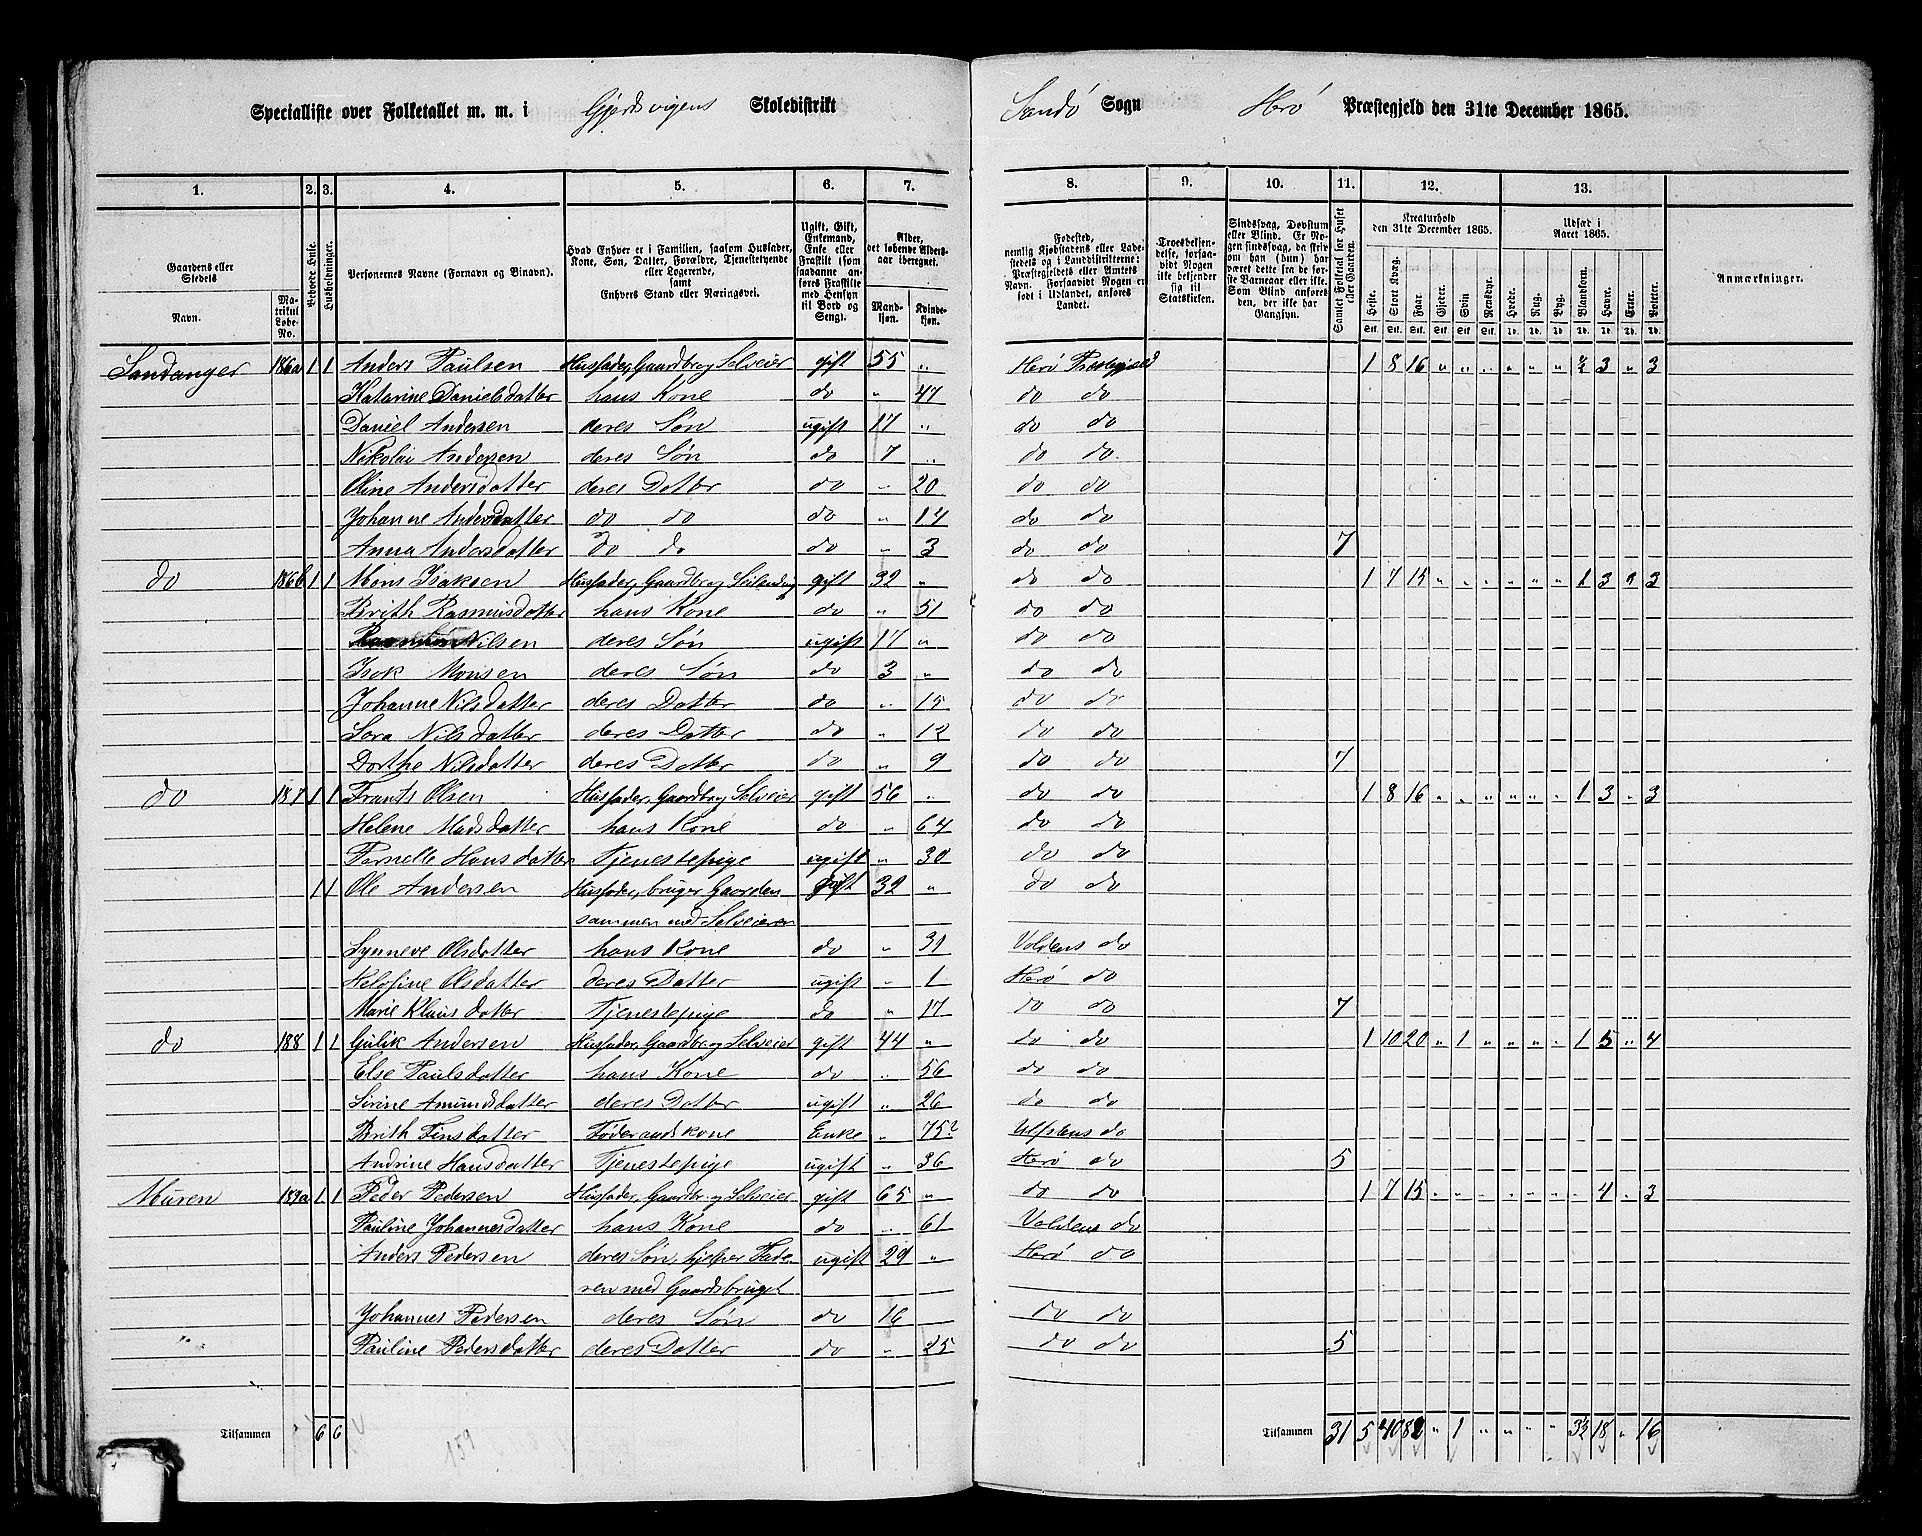 Specialliste over Folketallet m. m. i Gjerdsvigens Skoledistrikt Sandø Sogn Herø Præstegjeld den 31te December 1865.
1. 2. 3. 4. 5. 6. 7. 8. 9. 10. 11. 12. 13.
Gaardens eller Stedets
Navn.
Matrikul Løbe-No.
Beboede Huse.
Husholdninger.
Personernes Navne (Fornavn og Binavn).
Hvad Enhver er i Familien, saasom Husfader, Kone, Søn, Datter, Forældre, Tjenestetyende eller Logerende, samt Enhvers Stand eller Næringsvei.
Ugift, Gift, Enkemand, Enke eller Fraskilt (som saadanne anføres Fraskilte med Hensyn til Bord og Seng).
Alder, det løbende Aldersaar iberegnet.
Mandkjøn. Kvindekjøn.
Fødested, nemlig Kjøbstadens eller Ladestedets og i Landdistrikterne: Præstegjeldets eller Amtets Navn. Forsaavidt Nogen er født i Udlandet, anføres Landet.
Troesbekjendelse, forsaavidt Nogen ikke bekjender sig til Statskirken.
Sindssvag, Døvstum eller Blind. Er Nogen sindssvag, da skrives om han (hun) har været dette fra de første Barneaar eller ikke. Som Blind anføres den, der ikke har Gangsyn.
Samlet Folketal for Huset eller Gaarden.
Kreaturhold den 31te December 1865.
Heste. Stort Kvæg. Faar. Gjeder. Svin Rensdyr.
Udsæd i Aaret 1865.
Hvede. Rug. Byg. Blandkorn. Havre. Erter. Poteter.
Anmærkninger.
Sandanger 186a 1 1 Anders Paulsen Husfader, Gaardbr og Selveier gift 55 „ Herø Præstegjeld 1 8 16 „ „ „ „ „ „ ½ 3 „ 3
Katarine Danielsdatter hans Kone do „ 47 do do
Daniel Andersen deres Søn ugift 17 „ do do
Nikolai Andersen deres Søn do 7 „ do do
Oline Andersdatter deres Datter do „ 20 do do
Johanne Andersdatter do do do „ 14 do do
Anna Andersdatter do do do „ 3 do do 7
do 186b 1 1 Mons Isaksen Husfader, Gaardbr og gift 32 „ do do 1 7 15 „ „ „ „ „ „ 1 3 „ 3
Brith Rasmusdatter hans Kone do „ 51 do do
Nilsen deres Søn ugift 17 „ do do
Isak Monsen deres Søn do 3 „ do do
Johanne Nilsdatter deres Datter do „ 15 do do
Lova Nilsdatter deres Datter do „ 12 do do
Dorthe Nilsdatter deres Datter do „ 9 do do 7
do 187 1 1 Frants Olsen Husfader, Gaardbr og Selveier gift 56 „ do do 1 8 16 „ „ „ „ „ „ 1 3 „ 3
Helene Madsdatter hans Kone do „ 64 do do
Pernelle Hansdatter Tjenestepige ugift „ 30 do do
1 1 Ole Andersen Husfader, bruger Gaarden gift 32 „ do do
sammen med Selveieren
Synneve Olsdatter hans Kone do „ 31 Voldens do
Helofine Olsdatter deres Datter ugift „ 1 Herø do
Marie Klausdatter Tjenestepige do „ 17 do do 7
do 188 1 1 Gulik Andersen Husfader, Gaardbr og Selveier gift 44 „ do do 1 10 20 „ 1 „ „ „ „ 1 5 „ 4
Else Paulsdatter hans Kone do „ 56 do do
Sirine Amundsdatter deres Datter ugift „ 26 do do
Brith Finsdatter Føderaadskone Enke „ 75? Ulfstens do
Andrine Hansdatter Tjenestepige ugift „ 36 Herø do 5
Muren 189a 1 1 Peder Pedersen Husfader, Gaardbr og Selveier gift 65 „ do do 1 7 15 „ „ „ „ „ „ „ 4 „ 3
Pauline Johannesdatter hans Kone do „ 61 Voldens do
Anders Pedersen deres Søn, hjelper Fade- ugift 29 „ Herø do
ren med Gaardsbruget
Johannes Pedersen deres Søn do 16 do do
Pauline Pedersdatter deres Datter do „ 25 do do 5
Tilsammen 6 6 Tilsammen 31 5 40 82 „ 1 „ „ „ „ 3½ 18 „ 16
159